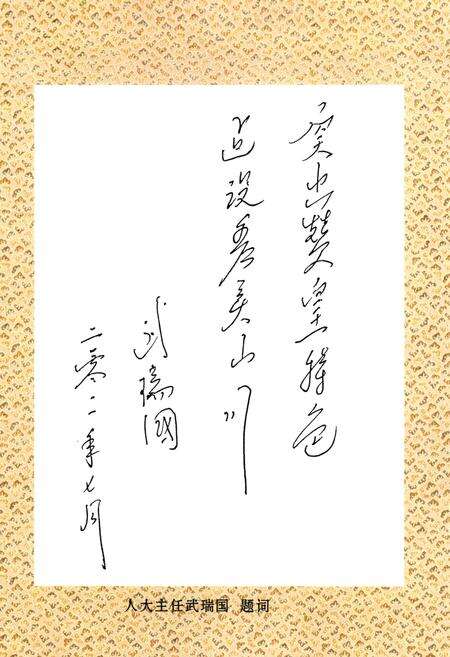 突出赞皇特色
建设秀美山川
武瑞國
二零一一年七月
人大主任武瑞国 题词